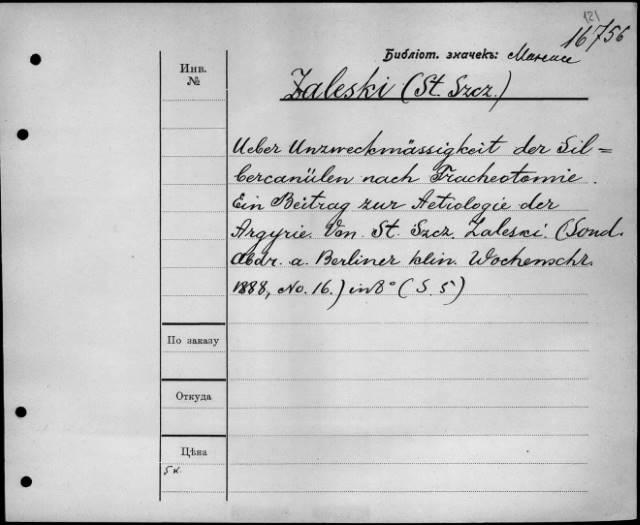 121
16756
Библіот. значекъ:
Инв.
№
Zaleski (St. Szcz.)
Ueber Unzweckmässigkeit der Sil=
bercanülen nach Tracheotomie.
Ein Beitrag zur Aetiologie der
Argyrie. Von St. Szcz. Zaleski. (Sond.
Abdr. a. Berliner klin. Wochenschr.
1888, No. 16.) in 8° (S. 5)
По заказу
Откуда
Цѣна
5 к.